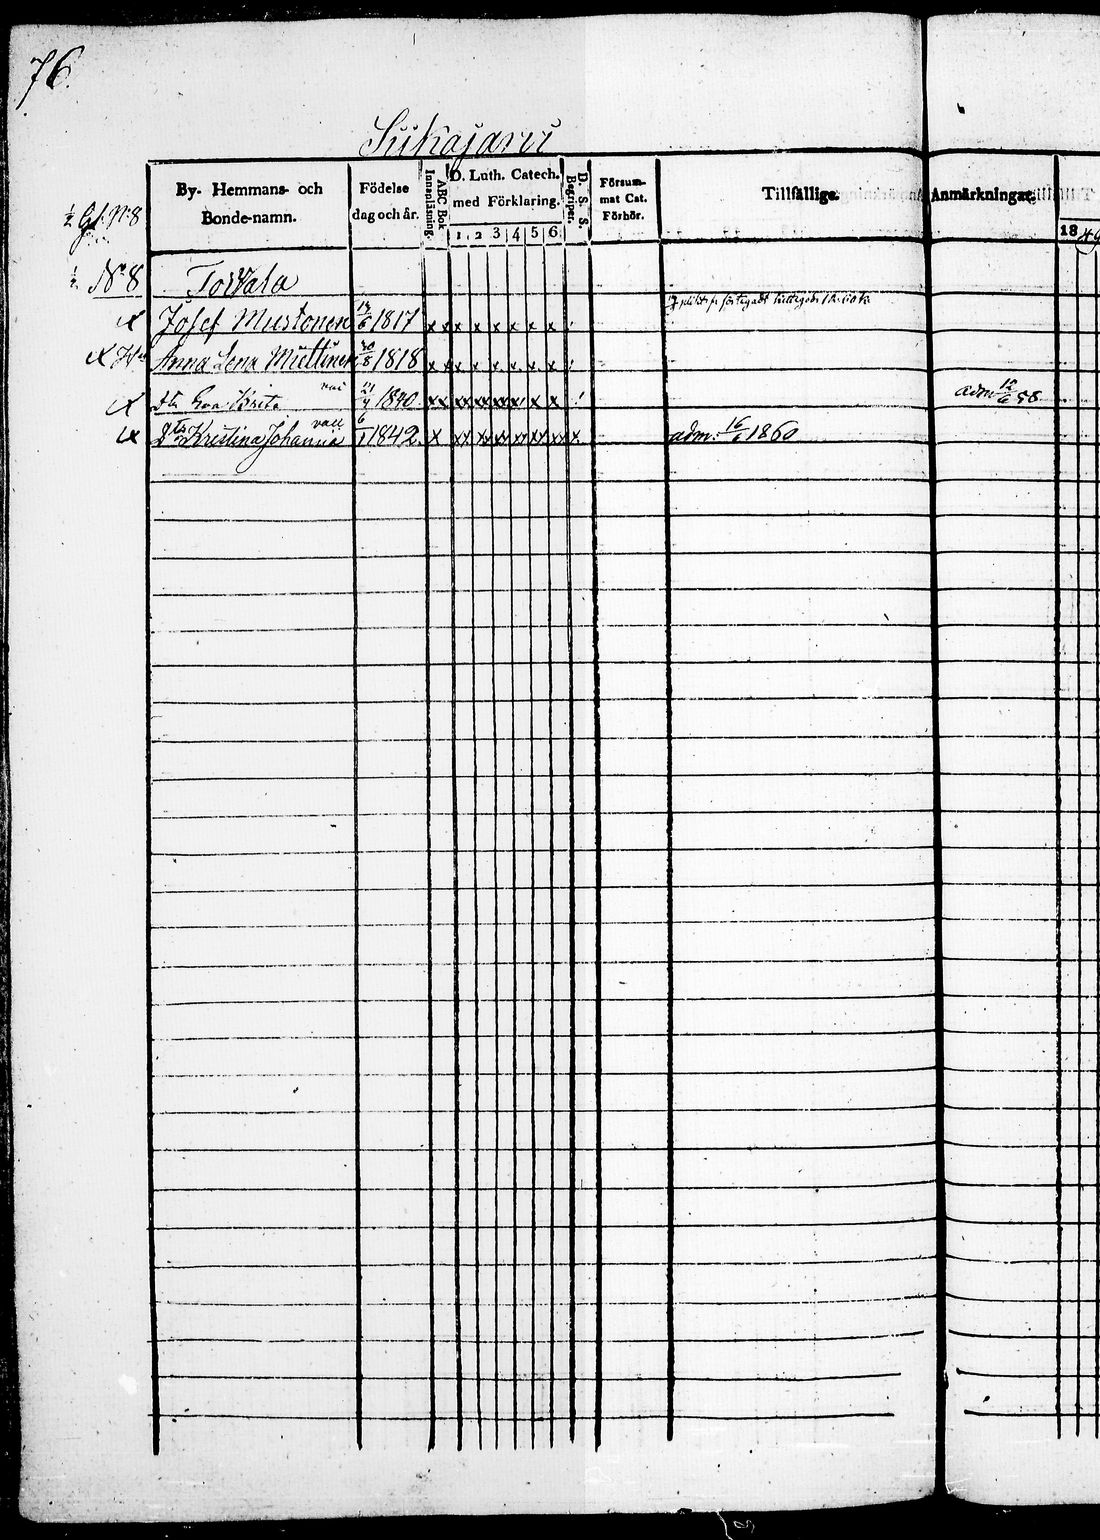 76.
Siikajärvi
By- Hemmans- och Bonde-namn.
Födelse dag och år.
ABC Bok Innanläsning.
D. Luth. Catech. med Förklaring.
1 2 3 4 5 6
D. S. S. Begriper.
Försummat Cat. Förhör.
Tillfällige Anmärkningar.
18 49
½ N:8
½ N:8 Torvala
x Josef Mustonen 6 1817 x x x x x x x x
x Anna Lena Miettinen 8 1818 x x x x x x x x
x Eva Brita 1840 xx xx xx xxx x x adm. 58
x Kristina Johanna 6/1 1842 x xx xx xx xx xx xx x adm. 16/6 1860